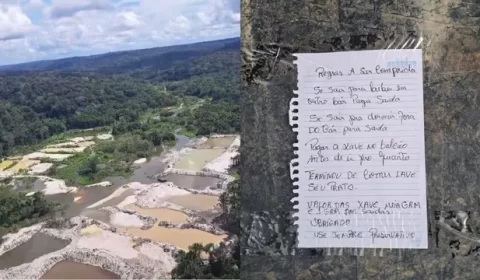 Regras A Ser Comprida
Se sair para beber em
outro bar Paga Saida
Se sair pra dormir fora
Do Bar paga Saida
Pagar a xave no balcão
antes de ir pro quarto
TERMINOU DE BEBER LAVE
SEU PRATO.
VALOR DAS XAVE, 
OBRIGADO
USE SEMPRE PRESERVATIVE